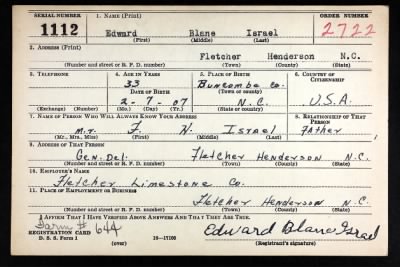 SERIAL NUMBER 1. NAME (Print) ORDER NUMBER
1112 Edward Blane Israel 2722
(First) (Middle) (Last)
2. ADDRESS (Print)
Fletcher Henderson N.C.
(Number and street or R. F. D. number) (Town) (County) (State)
3. TELEPHONE 4. AGE IN YEARS 5. PLACE OF BIRTH 6. COUNTRY OF CITIZENSHIP
33 Buncombe Co.
DATE OF BIRTH (Town or county)
2-7-07 N.C. U.S.A.
(Exchange) (Number) (Mo.) (Day) (Yr.) (State or country)
7. NAME OF PERSON WHO WILL ALWAYS KNOW YOUR ADDRESS 8. RELATIONSHIP OF THAT PERSON
Mr. F. N. Israel Father
(Mr., Mrs., Miss) (First) (Middle) (Last)
9. ADDRESS OF THAT PERSON
Gen. Del. Fletcher Henderson N.C.
(Number and street or R. F. D. number) (Town) (County) (State)
10. EMPLOYER'S NAME
Fletcher Limestone Co.
11. PLACE OF EMPLOYMENT OR BUSINESS
Fletcher Henderson N.C.
(Number and street or R. F. D. number) (Town) (County) (State)
I AFFIRM THAT I HAVE VERIFIED ABOVE ANSWERS AND THAT THEY ARE TRUE.
Farm # 644
REGISTRATION CARD
D. S. S. Form 1 (over) 16—17105 Edward Blane Israel
(Registrant's signature)